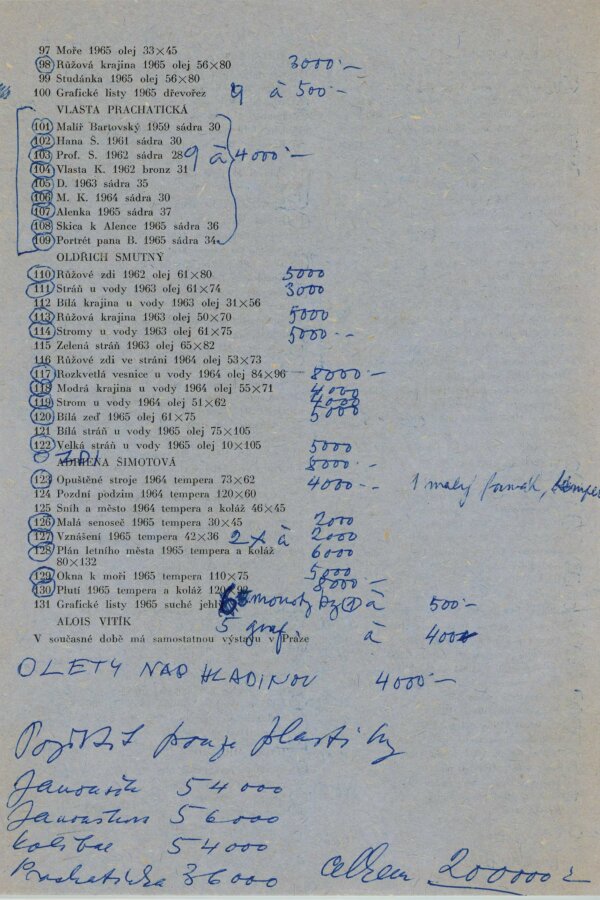 97 Moře 1965 olej 33×45
98 Růžová krajina 1965 olej 56×80 3000.–
99 Studánka 1965 olej 56×80
100 Grafické listy 1965 dřevořez 9 à 500.–
VLASTA PRACHATICKÁ
101 Malíř Bartovský 1959 sádra 30
102 Hana Š. 1961 sádra 30
103 Prof. S. 1962 sádra 28 9 à 4000.–
104 Vlasta K. 1962 bronz 31
105 D. 1963 sádra 35
106 M. K. 1964 sádra 30
107 Alenka 1965 sádra 37
108 Skica k Alence 1965 sádra 36
109 Portrét pana B. 1965 sádra 34
OLDŘICH SMUTNÝ
110 Růžové zdi 1962 olej 61×80 5000
111 Stráň u vody 1963 olej 61×74 3000
112 Bílá krajina u vody 1963 olej 31×56
113 Růžová krajina 1963 olej 50×70 5000
114 Stromy u vody 1963 olej 61×75 5000.–
115 Zelená stráň 1963 olej 65×82
116 Růžové zdi ve stráni 1964 olej 53×73
117 Rozkvetlá vesnice u vody 1964 olej 84×96 8000.–
118 Modrá krajina u vody 1964 olej 55×71 4000
119 Strom u vody 1964 olej 51×62 4000
120 Bílá zeď 1965 olej 61×75 5000
121 Bílá stráň u vody 1965 olej 75×105
122 Velká stráň u vody 1965 olej 10×105 5000
ADRIENA ŠIMOTOVÁ 8000.–
123 Opuštěné stroje 1964 tempera 73×62 4000.– 1 malý formát,
124 Pozdní podzim 1964 tempera 120×60
125 Sníh a město 1964 tempera a koláž 46×45
126 Malá senoseč 1965 tempera 30×45 2000
127 Vznášení 1965 tempera 42×36 2× à 2000
128 Plán letního města 1965 tempera a koláž 6000
80×132
129 Okna k moři 1965 tempera 110×75 5000
130 Plutí 1965 tempera a koláž 120×92 8000.–
131 Grafické listy 1965 suché à 500.–
ALOIS VITÍK 5 graf. à 400
V současné době má samostatnou výstavu v Praze
OLETY NAD HLADINOU 4000.–
Pojistit pouze plastiky
Janoušek 54000
56000
Kolíbal 54000
Prachatická 36000 celkem 200000